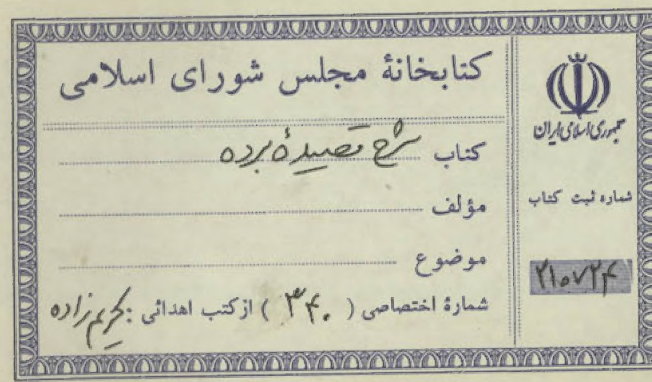 کتابخانهٔ مجلس شورای اسلامی
کتاب شرح قصیدهٔ برده
مؤلف
موضوع
شمارهٔ اختصاصی ( ۳۴۰ ) از کتب اهدائی : کریم‌زاده
جمهوری اسلامی ایران
شماره ثبت کتاب
۲۱۰۷۲۴